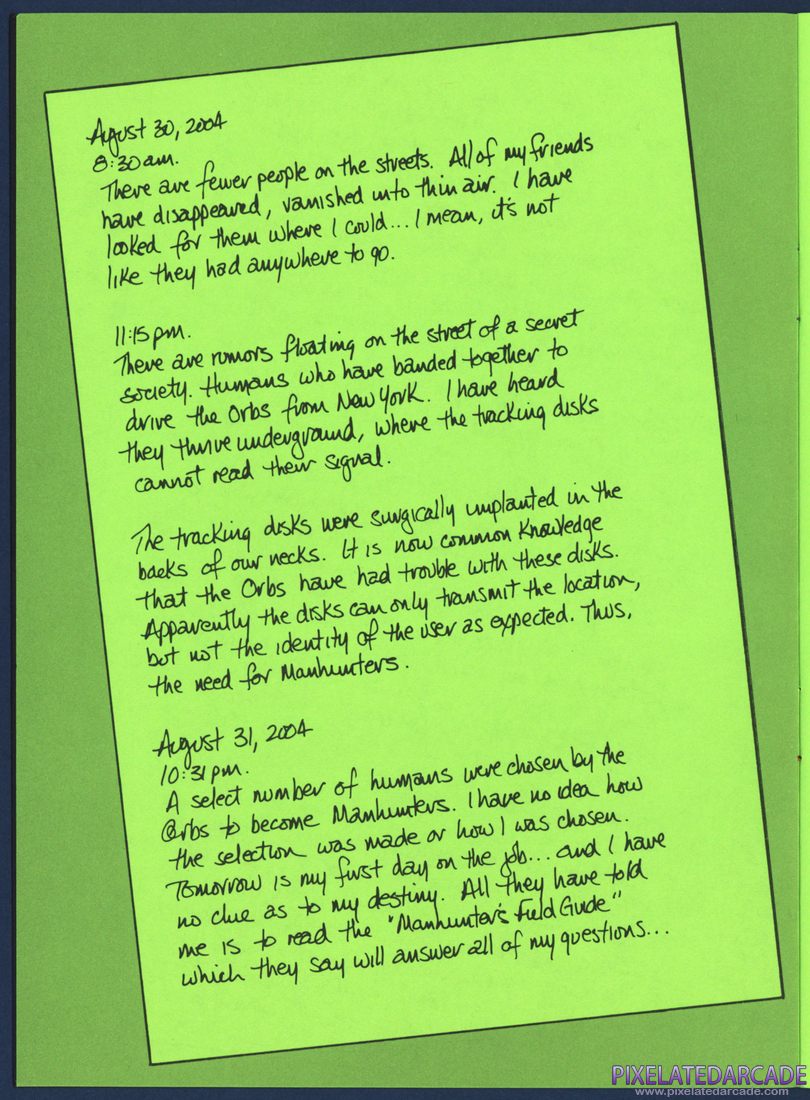 August 30, 2004
8:30am.
There are fewer people on the streets. All of my friends
have disappeared, vanished into thin air. I have
looked for them where I could... I mean, it's not
like they had anywhere to go.
11:15pm.
There are rumors floating on the street of a secret
society. Humans who have banded together to
drive the Orbs from New York. I have heard
they thrive underground, where the tracking disks
cannot read their signal.
The tracking disks were surgically implanted in the
backs of our necks. It is now common knowledge
that the Orbs have had trouble with these disks.
Apparently the disks can only transmit the location,
but not the identity of the user as expected. Thus,
the need for Manhunters.
August 31, 2004
10:31pm.
A select number of humans were chosen by the
Orbs to become Manhunters. I have no idea how
the selection was made or how I was chosen.
Tomorrow is my first day on the job... and I have
no clue as to my destiny. All they have told
me is to read the "Manhunter's Field Guide"
which they say will answer all of my questions...
PIXELATEDARCADE
www.pixelatedarcade.com